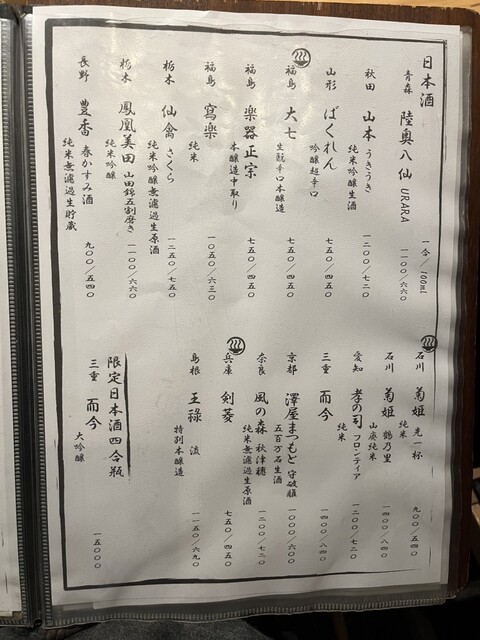 日本酒
一合／100ml
青森 陸奥八仙 URARA 一一〇〇／六六〇
秋田 山本 うきうき 純米吟醸生酒 一二〇〇／七二〇
山形 ばくれん 吟醸超辛口 七五〇／四五〇
福島 大七 生酛辛口本醸造 七五〇／四五〇
福島 楽器正宗 本醸造中取り 七五〇／四五〇
福島 寫楽 純米 一〇五〇／六三〇
栃木 仙禽 さくら 純米吟醸無濾過生原酒 一二五〇／七五〇
栃木 鳳凰美田 山田錦五割磨き 純米吟醸 一一〇〇／六六〇
長野 豊香 春かすみ酒 純米無濾過生貯蔵 九〇〇／五四〇
石川 菊姫 先一杯 純米 九〇〇／五四〇
石川 菊姫 鶴乃里 山廃純米 一四〇〇／八四〇
愛知 孝の司 フロンティア 純米 一二〇〇／七二〇
三重 而今 一四〇〇／八四〇
京都 澤屋まつもと 守破離 五百万石生酒 一〇〇〇／六〇〇
奈良 風の森 秋津穂 純米無濾過生原酒 一二〇〇／七二〇
兵庫 剣菱 七五〇／四五〇
島根 王祿 渓 特別本醸造 一一五〇／六九〇
限定日本酒四合瓶
三重 而今 大吟醸 一五〇〇〇